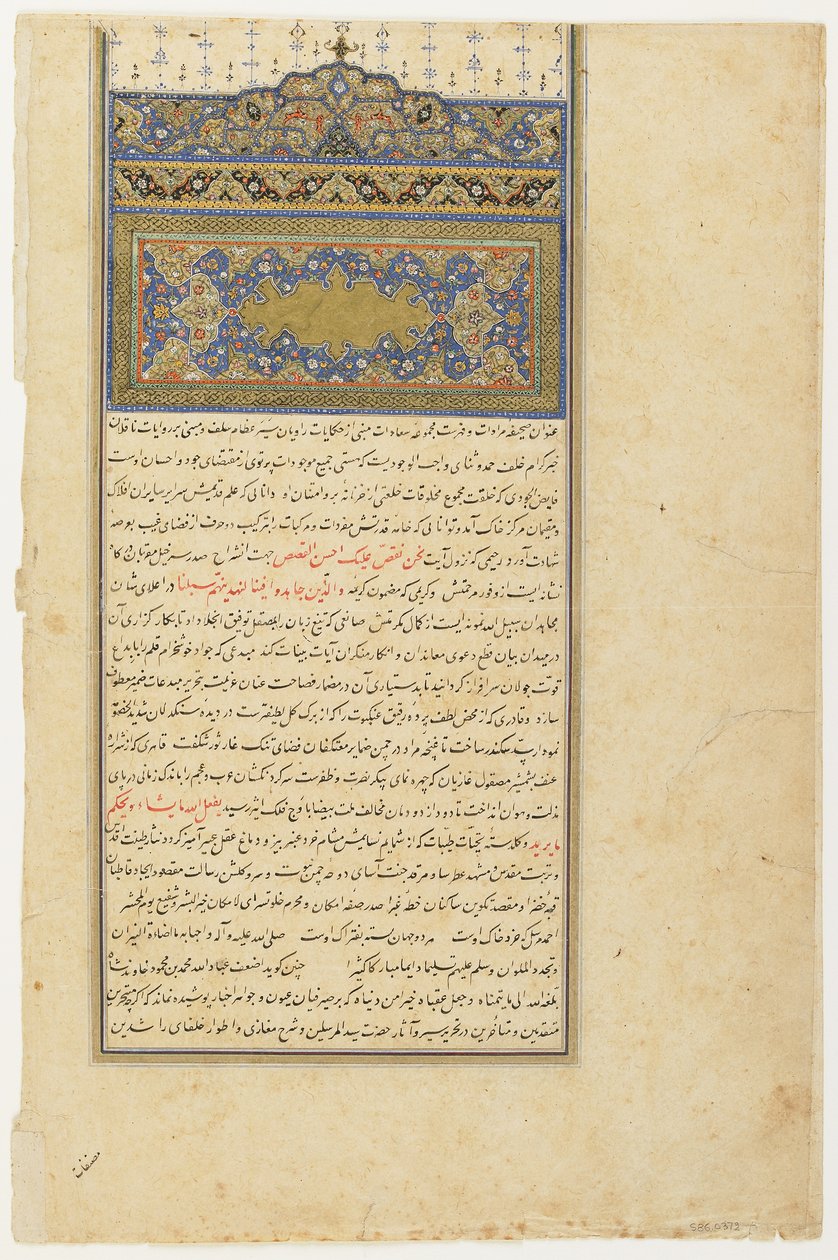 عنوان صحیفه مرادات و فهرست مجموعه سعادات مبنی از حکایات راویان سیر عظام سلف و مبنی بر روایات ناقلان
خبر کرام خلف حمد و ثنای واجب الوجودیست که هستی جمیع موجودات پرتوی از مقتضای جود و احسان اوست
فایض الجودی که خلقت مجموع مخلوقات خلعتی از خزانه بر و امتنان او دانایی که علم قدیمش سرایر سایران افلاک
و مقیمان مرکز خاک آمد و توانایی که خامه قدرتش مفردات و مرکبات را بترکیب دو حرف از فضای غیب بعرصه
شهادت آورد رحیمی که نزول آیت نحن نقص علیک احسن القصص جهت انشراح صدر سرخیل مقربان درگاه
نشانه ایست از وفور مرحمتش و کریمی که مضمون کریمه والذین جاهدوا فینا لنهدینهم سبلنا در اعلای شان
مجاهدان سبیل الله نمونه ایست از کمال مکرمتش صانعی که تیغ زبان را بمصقل توفیق انجلا داد تا بکار گزاری آن
در میدان بیان قطع دعوی معاندان و انکار منکران آیات بینات کند مبدعی که جواد خوشخرام قلم را بابداع
قوت جولان سرافراز گردانید تا بدستیاری آن در مضمار فصاحت عنان عزیمت بتحریر مبدعات ضمیر معطوف
سازد و قادری که از محض لطف پرده رقیق عنکبوت را که از برک کل لطیفترست در دیده سنکدلان شدید الخصومة
نموداری سد سکندر ساخت تا غنچه مراد در چمن ضمایر معتکفان فضای تنک غار ثور شکفت قاهری که از شراره
عنف بشمشیر مصقول غازیان که چهره نمای پیکر نصرت و ظفرست سر گردنکشان عرب و عجم را باندک زمانی در پای
مذلت و هوان انداخت تا دود از دودمان مخالف ملت بیضا باوج فلک اثیر رسید یفعل الله ما یشاء و یحکم
ما یرید و کلدسته تحیات طیبات که از شمایم نسایمش مشام خرد عنبر بیز و دماغ عقل عبیر آمیز کردد نثار طینت اقدس
و تربت مقدس و مشهد عطرسا و مرقد جنت آسای دوحه چمن نبوت و سرو کلشن رسالت مقصود ایجاد قاطنان
قبه خضرا و مقصد تکوین ساکنان خطه غبرا صدر صفه امکان و محرم خلوتسرای لامکان خیر البشر و شفیع یوم المحشر
احمد مرسل که خرد خاک اوست مر دو جهان بسته بفتراک اوست صلی الله علیه و آله و احبابه ما اضاءة النیران
و تجدد الملوان و سلم علیهم تسلیما دایما مبارکا کثیرا چنین کوید اضعف عباد الله محمد بن محمود خاوندشاه
بلغه الله الی ما یتمناه و جعل عقباه خیرا من دنیاه که بر صیرفیان عیون و جواهر اخبار پوشیده نماند که اکرچه متبحرین
متقدمین و متأخرین در تحریر سیر و آثار حضرت سید المرسلین و شرح مغازی و اطوار خلفای راشدین
مصنفات
S86.0372